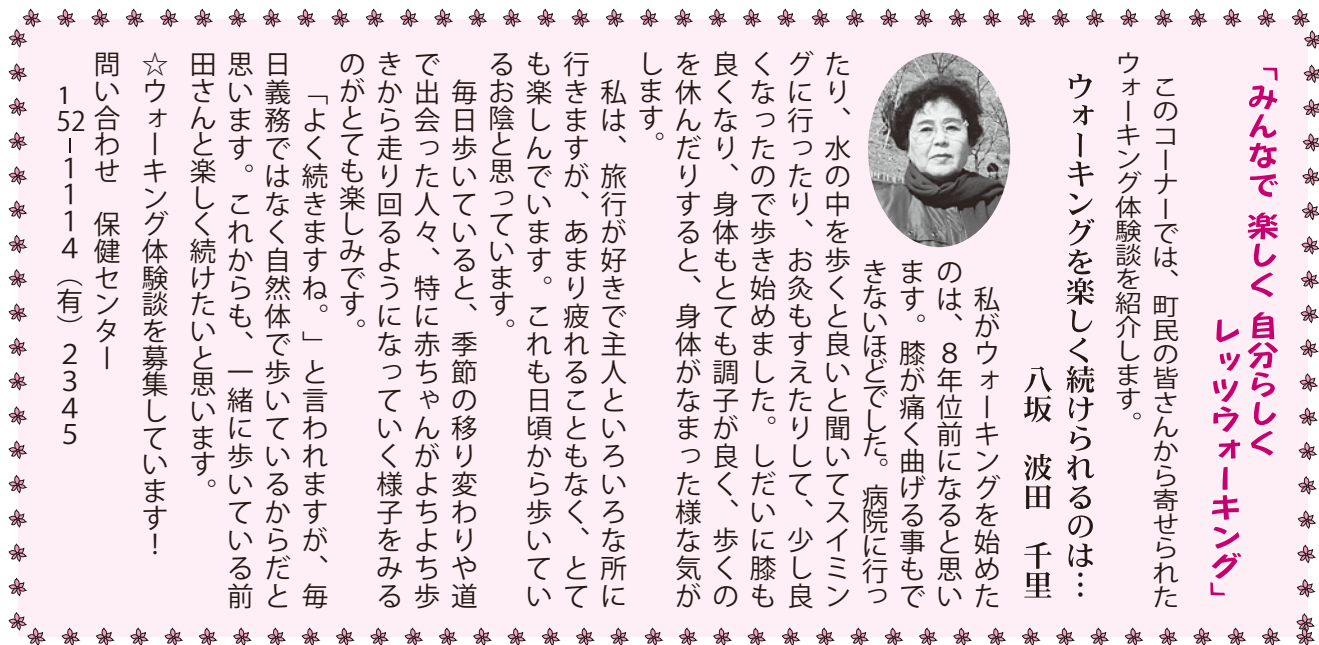 「みんなで 楽しく 自分らしく
レッツウォーキング」
このコーナーでは、町民の皆さんから寄せられた
ウォーキング体験談を紹介します。
ウォーキングを楽しく続けられるのは…
八坂　波田　千里
私がウォーキングを始めた
のは、８年位前になると思い
ます。膝が痛く曲げる事もで
きないほどでした。病院に行っ
たり、水の中を歩くと良いと聞いてスイミン
グに行ったり、お灸もすえたりして、少し良
くなったので歩き始めました。しだいに膝も
良くなり、身体もとても調子が良く、歩くの
を休んだりすると、身体がなまった様な気が
します。
私は、旅行が好きで主人といろいろな所に
行きますが、あまり疲れることもなく、とて
も楽しんでいます。これも日頃から歩いてい
るお陰と思っています。
毎日歩いていると、季節の移り変わりや道
で出会った人々、特に赤ちゃんがよちよち歩
きから走り回るようになっていく様子をみる
のがとても楽しみです。
「よく続きますね。」と言われますが、毎
日義務ではなく自然体で歩いているからだと
思います。これからも、一緒に歩いている前
田さんと楽しく続けたいと思います。
☆ウォーキング体験談を募集しています！
問い合わせ　保健センター
152−1114（有）2345